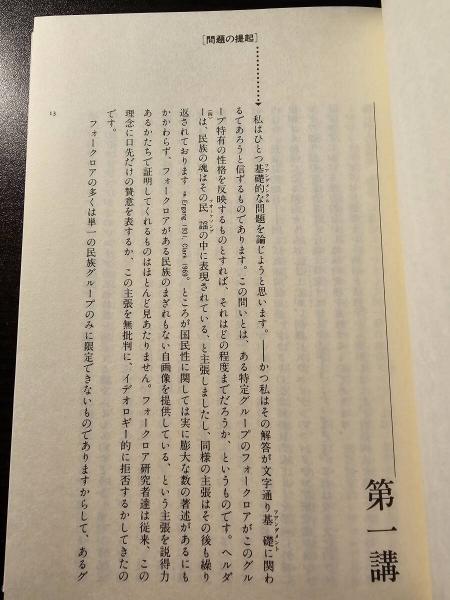 第一講
[問題の提起]
私はひとつ基礎的な問題を論じようと思います。――かつ私はその解答が文字通り基礎に関わ
るであろうと信ずるものであります。この問いとは、ある特定グループのフォークロアがこのグル
ープ特有の性格を反映するものとすれば、それはどの程度までだろうか、というものです。ヘルダ
ーは、民族の魂はその民謡の中に表現されている、と主張しましたし、同様の主張はその後も繰り
返されております Ergang 1931, Clark 1969。ところが国民性に関しては実に膨大な数の著述があるにも
かかわらず、フォークロアがある民族のまぎれもない自画像を提供している、という主張を説得力
あるかたちで証明してくれるものはほとんど見あたりません。フォークロア研究者達は従来、この
理念に口先だけの賛意を表するか、この主張を無批判に、イデオロギー的に拒否するかしてきたの
です。
フォークロアの多くは単一の民族グループのみに限定できないものでありますからして、あるグ
13